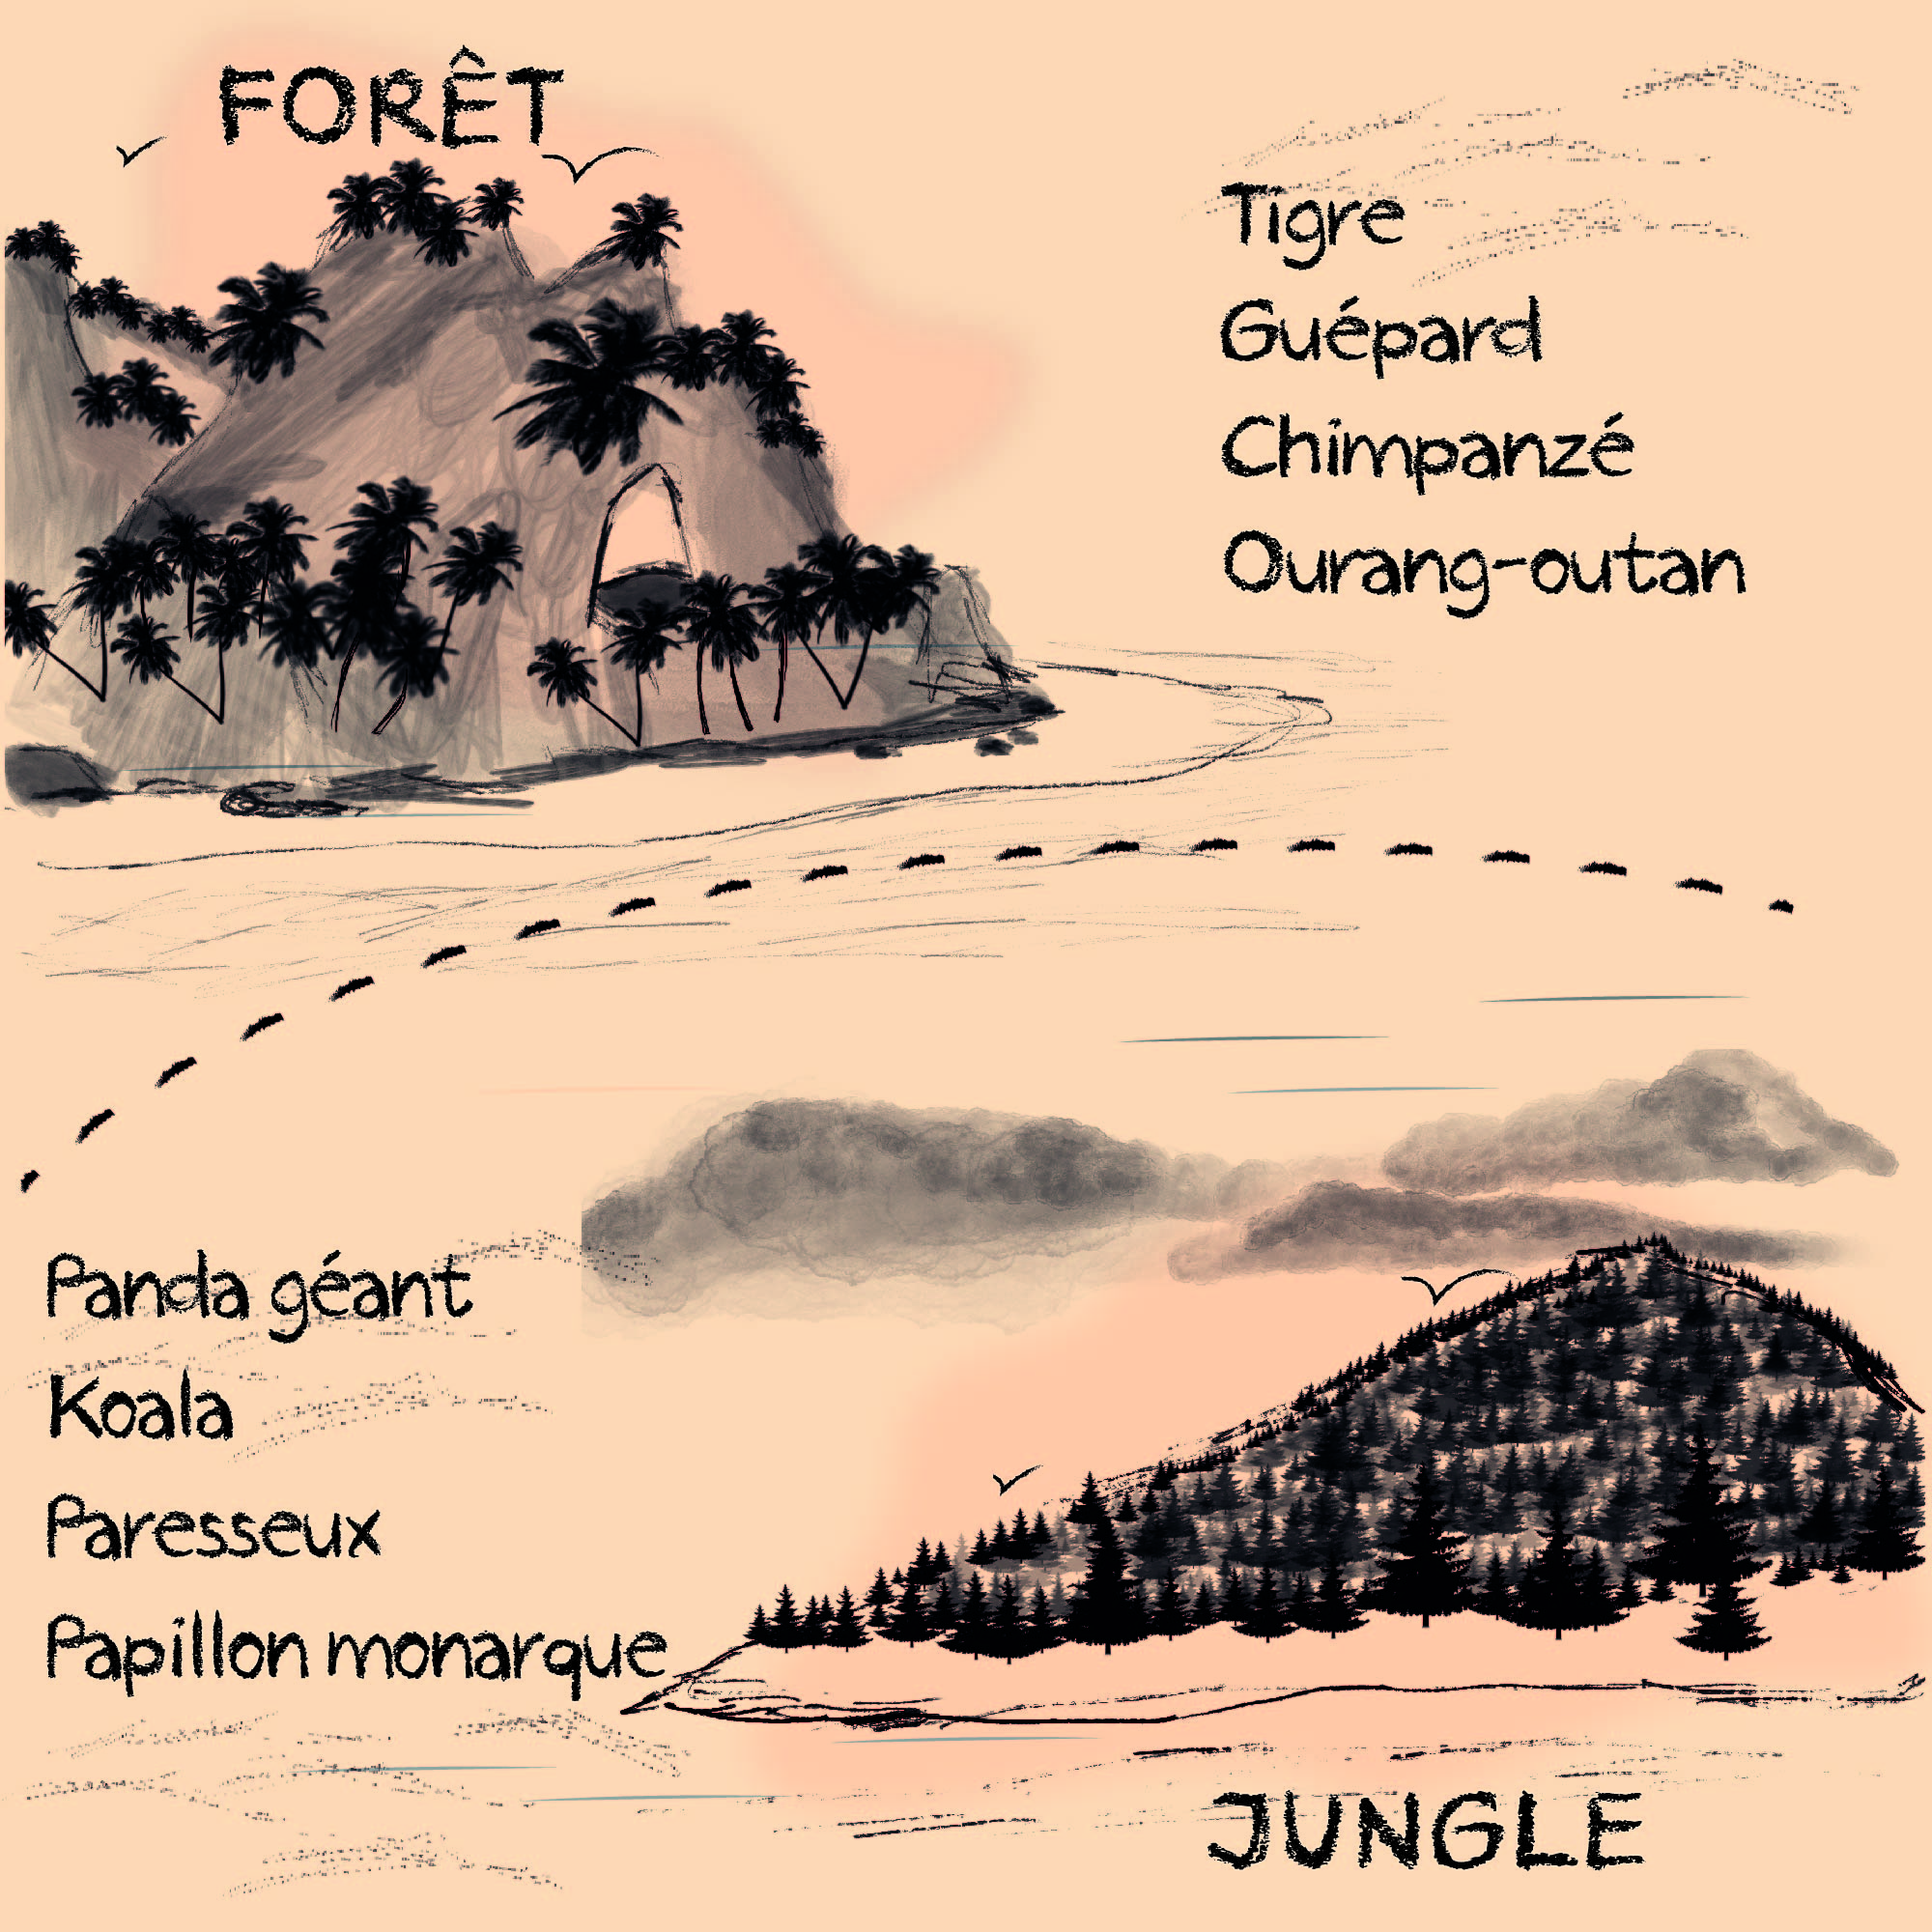 FORÊT
Tigre
Guépard
Chimpanzé
Ourang-outan
Panda géant
Koala
Paresseux
Papillon monarque
JUNGLE